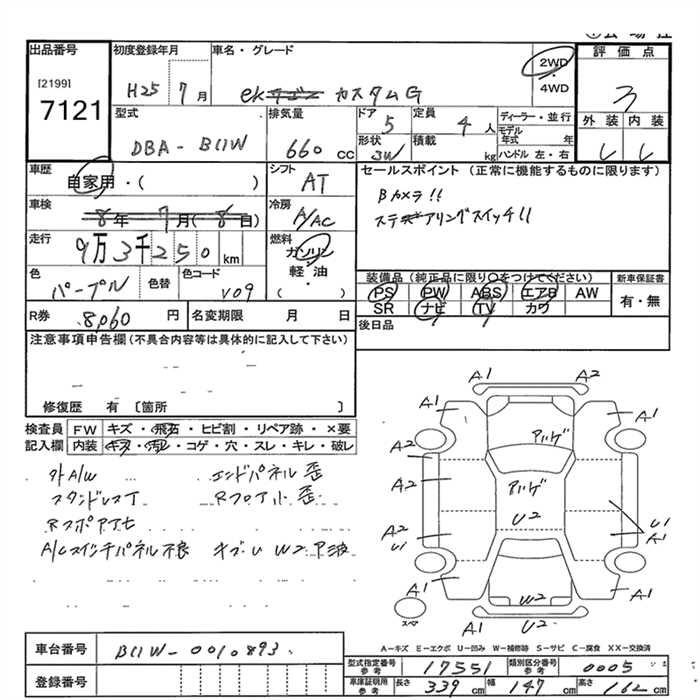 出品番号 初度登録年月 車名・グレード 評価点
[2199] 7121 H25 7月 ek ワゴン カスタムG 2WD・4WD 3
型式 排気量 ドア 定員 ディーラー・並行 外装 内装
DBA - B11W 660 cc 5 4人 モデル年式 年
形状 積載 kg ハンドル 左・右
車歴 シフト セールスポイント (正常に機能するものに限ります)
自家用・( ) AT Bカメラ!!
車検 冷房 ステアリングスイッチ!!
8年 7月(8日) A/AC
走行 燃料
9万3千250km ガソリン
軽・油
( )
色 パープル 色替 色コード V09
装備品 (純正品に限り○をつけてください) 新車保証書
PS PW ABS エアB AW 有・無
SR ナビ TV カワ
R券 8,060円 名変期限 月 日 後日品
注意事項申告欄 (不具合内容等は具体的に記入して下さい)
修復歴 有 [箇所 ]
検査員 FW キズ・飛石・ヒビ割・リペア跡・×要
記入欄 内装 キズ・汚レ・コゲ・穴・スレ・キレ・破レ
外A/W エンドパネル歪
Rフロア小歪
A/Cスイッチパネル不良 キズU W2
A1 A2
A1 A1
アハゲ
A2
A2 アハゲ
U2
A2 U1
U1 A1
A1 W2 A1
スペア
A1 U2
A-キズ E-エクボ U-凹み W-補修跡 S-サビ C-腐食 XX-交換済
車台番号 B11W-0010893
型式指定番号 参考 17551 類別区分番号 参考 0005
登録番号
車庫証明用 参考 長さ 339cm 幅 147cm 高さ 112cm